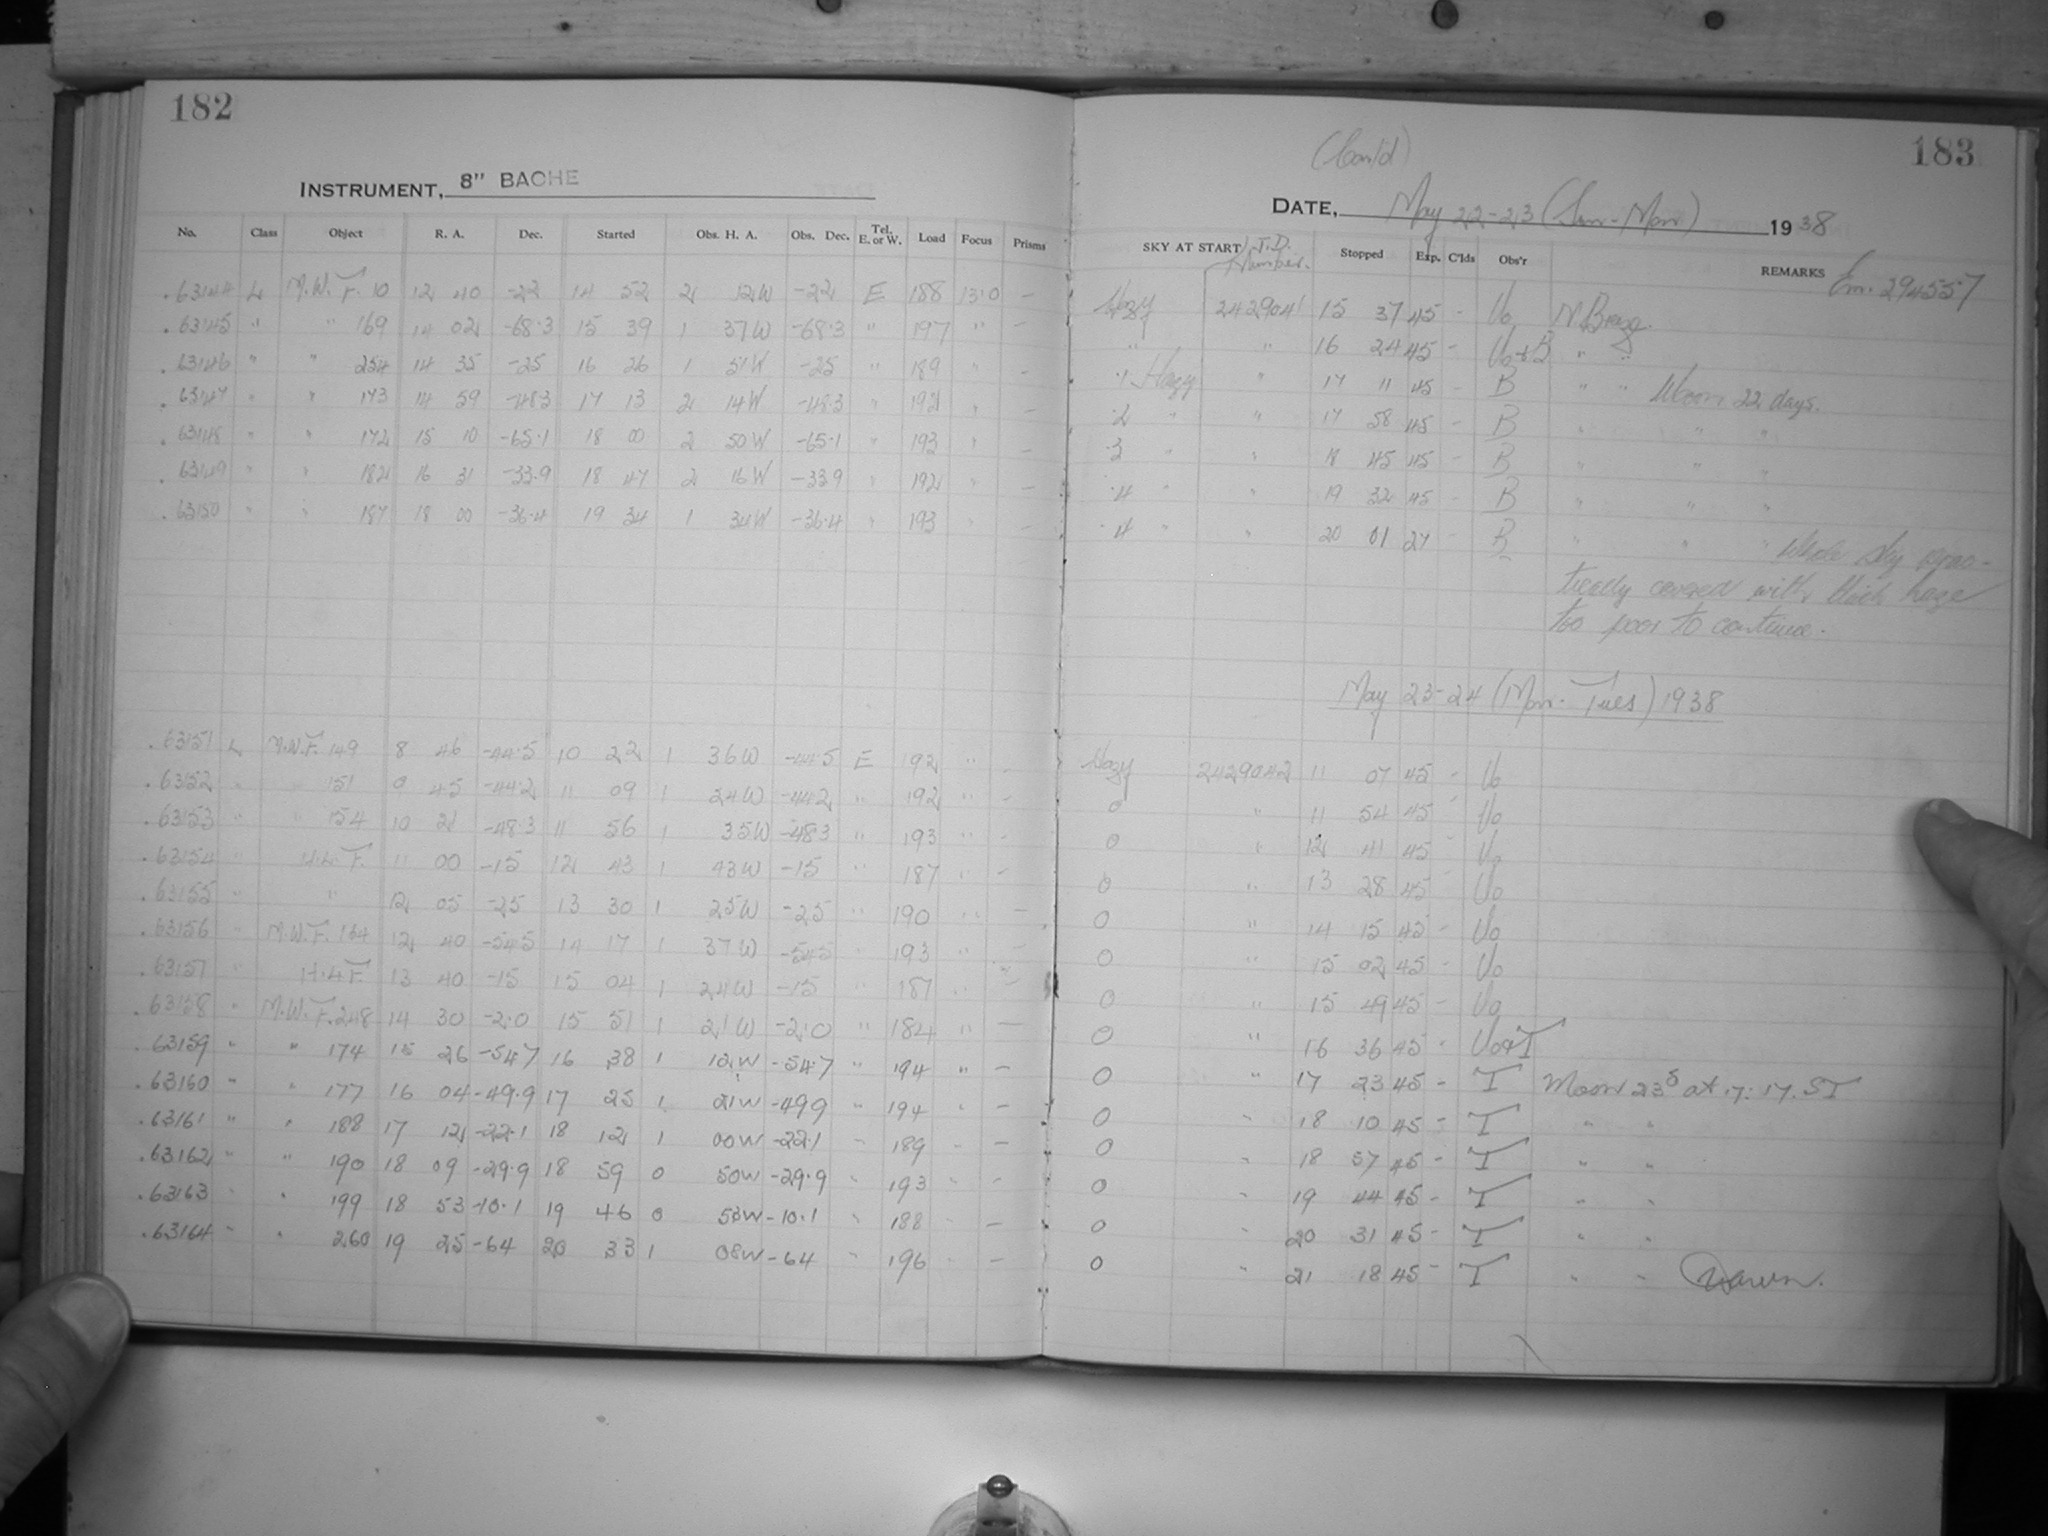 182
INSTRUMENT, 8" BACHE
No. Class Object R. A. Dec. Started Obs. H. A. Obs. Dec. Tel. E. or W. Load Focus Prisms
.63144 L M.W.F. 10 12 40 -22 14 52 2 12W -22 E 188 13.0 -
.63145 " " 169 14 02 -68.3 15 39 1 37W -68.3 " 197 " -
.63146 " " 254 14 35 -25 16 26 1 51W -25 " 189 " -
.63147 " " 173 14 59 -48.3 17 13 2 14W -48.3 " 192 " -
.63148 " " 172 15 10 -65.1 18 00 2 50W -65.1 " 193 " -
.63149 " " 182 16 31 -33.9 18 47 2 16W -33.9 " 192 " -
.63150 " " 187 18 00 -36.4 19 34 1 34W -36.4 " 193 " -
.63151 L M.W.F. 149 8 46 -44.5 10 22 1 36W -44.5 E 192 " -
.63152 " " 151 9 45 -44.2 11 09 1 24W -44.2 " 192 " -
.63153 " " 154 10 21 -48.3 11 56 1 35W -48.3 " 193 " -
.63154 " 11 00 -15 12 43 1 43W -15 " 187 " -
.63155 " " 12 05 -25 13 30 1 25W -25 " 190 " -
.63156 " M.W.F. 164 12 40 -54.5 14 17 1 37W -54.5 " 193 " -
.63157 " H.L.F. 13 40 -15 15 04 1 24W -15 " 187 " -
.63158 " M.W.F. 248 14 30 -2.0 15 51 1 21W -2.0 " 184 " -
.63159 " " 174 15 26 -54.7 16 38 1 12W -54.7 " 194 " -
.63160 " " 177 16 04 -49.9 17 25 1 21W -49.9 " 194 " -
.63161 " " 188 17 12 -22.1 18 12 1 00W -22.1 " 189 " -
.63162 " " 190 18 09 -29.9 18 59 0 50W -29.9 " 193 " -
.63163 " " 199 18 53 -10.1 19 46 0 53W -10.1 " 188 " -
.63164 " " 260 19 25 -64 20 33 1 08W -64 " 196 " -
183
(Con/d)
DATE, May 22-23 (Sun-Mon) 1938
SKY AT START J.D. Number. Stopped Exp. C'lds Obs'r REMARKS Em. 294557
Hazy 2429041 15 37 45 - Vo N Breeze.
" " 16 24 45 - Vo & B " "
.1 Hazy " 17 11 45 - B " " Moon 22 days.
.2 " " 17 58 45 - B " " "
.3 " " 18 45 45 - B " " "
.4 " " 19 32 45 - B " " "
.4 " " 20 01 27 - B " " " Whole sky prac-
tically covered with thick haze
too poor to continue.
May 23-24 (Mon-Tues) 1938
Hazy 2429042 11 07 45 - Vo
0 " 11 54 45 - Vo
0 " 12 41 45 - Vo
0 " 13 28 45 - Vo
0 " 14 15 45 - Vo
0 " 15 02 45 - Vo
0 " 15 49 45 - Vo
0 " 16 36 45 - Vo & T
0 " 17 23 45 - T Moon 23d at 17:17. ST
0 " 18 10 45 - T " "
0 " 18 57 45 - T " "
0 " 19 44 45 - T " "
0 " 20 31 45 - T " "
0 " 21 18 45 - T " " Dawn.